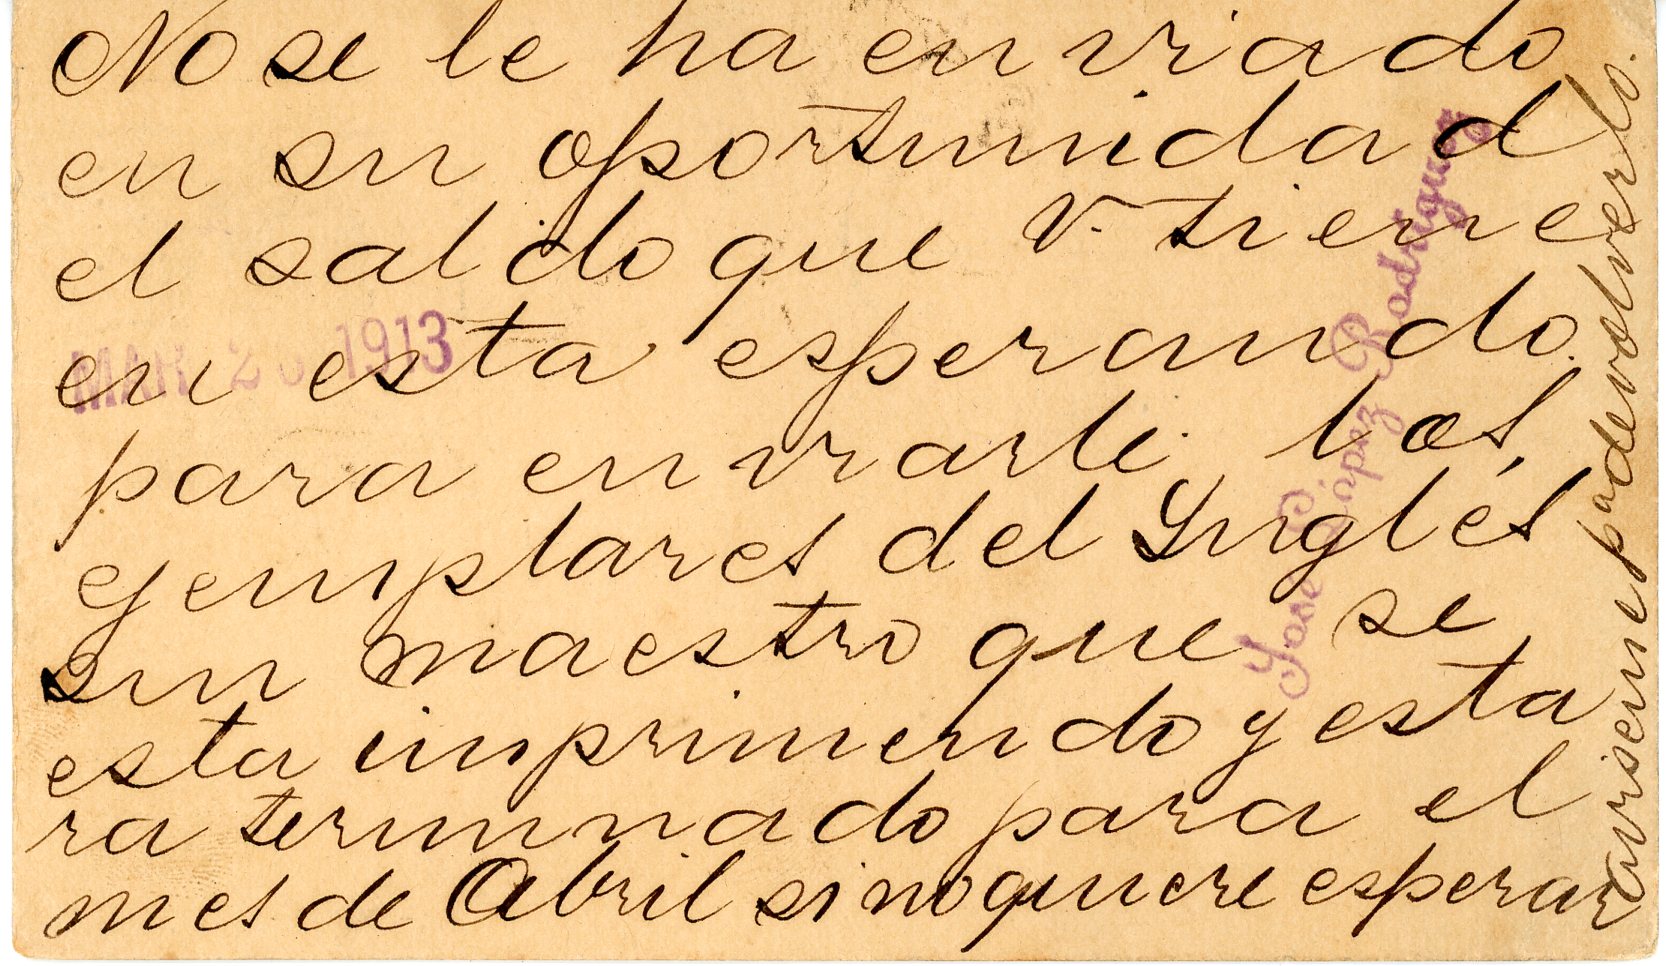 No se le ha enviado
en su oportunidad
el saldo que V. tiene
en esta esperando
para enviarle los
ejemplares del Inglés
sin maestro que se
esta imprimendo y esta
ra terminado para el
mes de Abril si no quiere esperar
avriseme pa devolverlo.
MAR 2 1913
José López Rodriguez